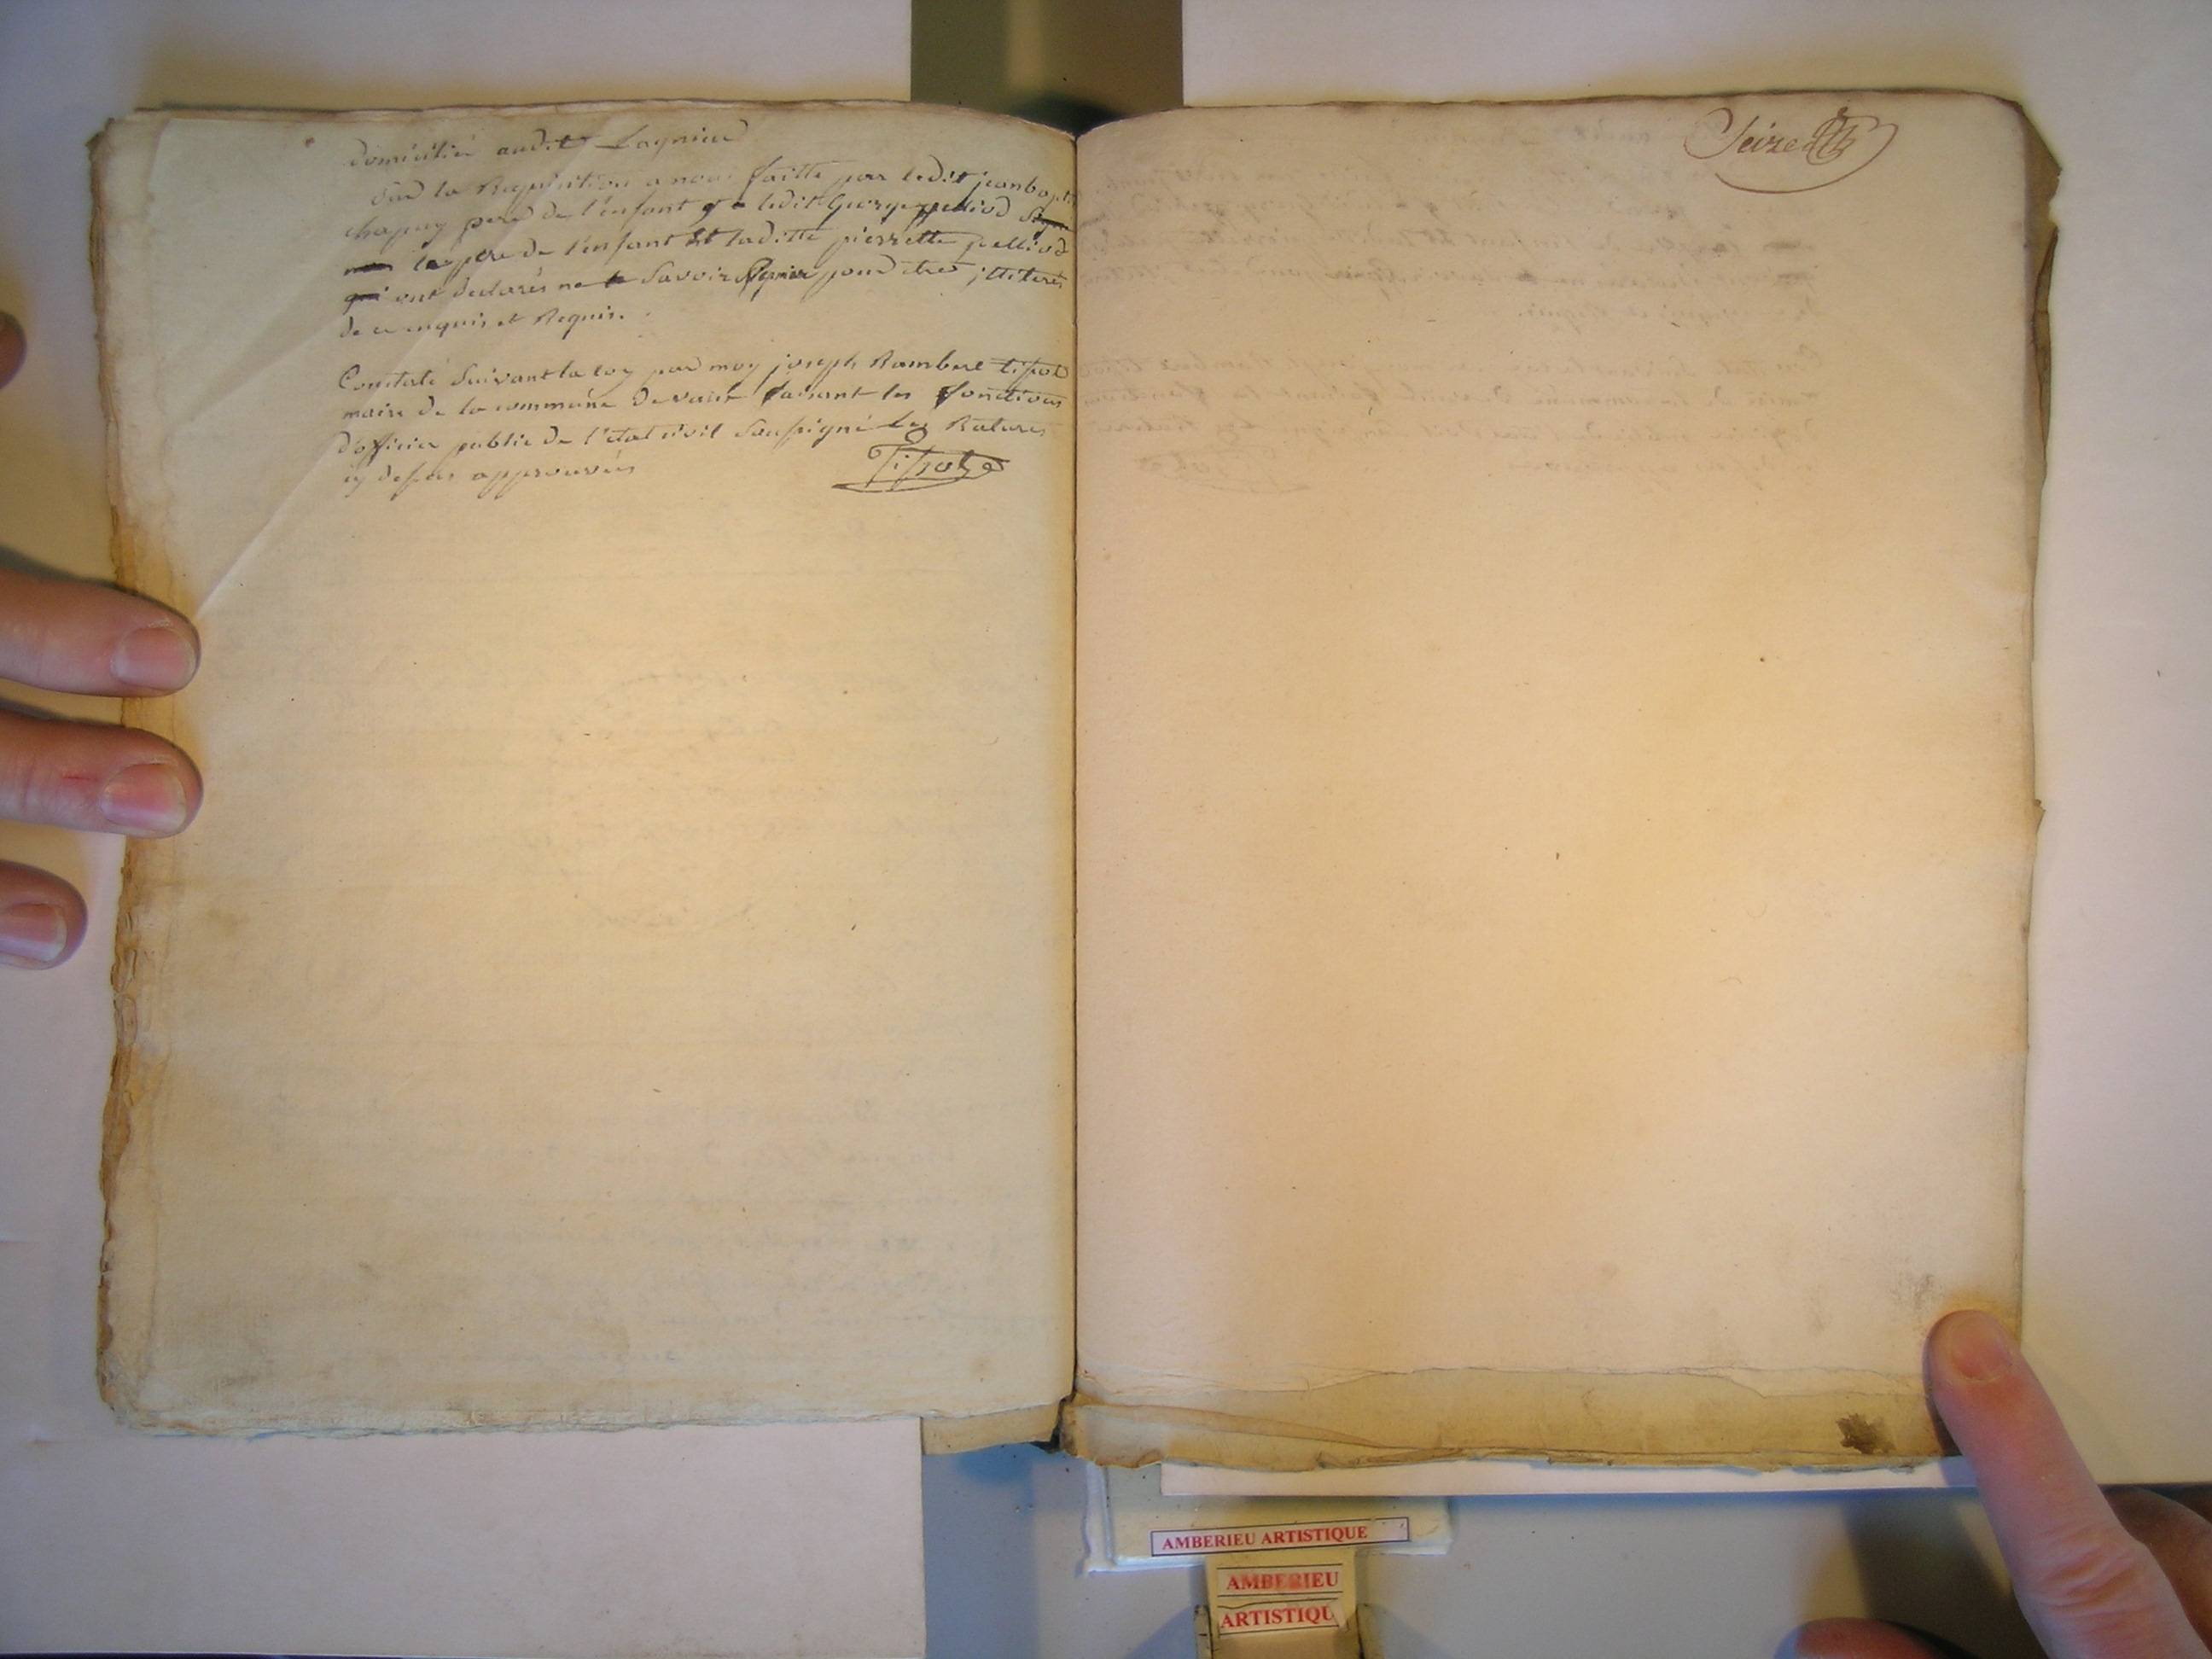 domicilié audit Lagnieu
Sur la Requisition a nous faitte par ledit jean bapt
chapuy pere de l'enfant et ledit George pelliod
le pere de l'enfant et laditte pierrette pelliod
qui ont declarés ne savoir signer pour etre illiterés
de ce enquis et Requis.
Constaté suivant la loy par moy joseph Rambert tissot
maire de la commune de vaux faisant les fonctions
d'officier public de l'etat civil soussigné les Ratures
cy dessus approuvées
Tissot
Seize
AMBERIEU ARTISTIQUE
AMBERIEU
ARTISTIQU